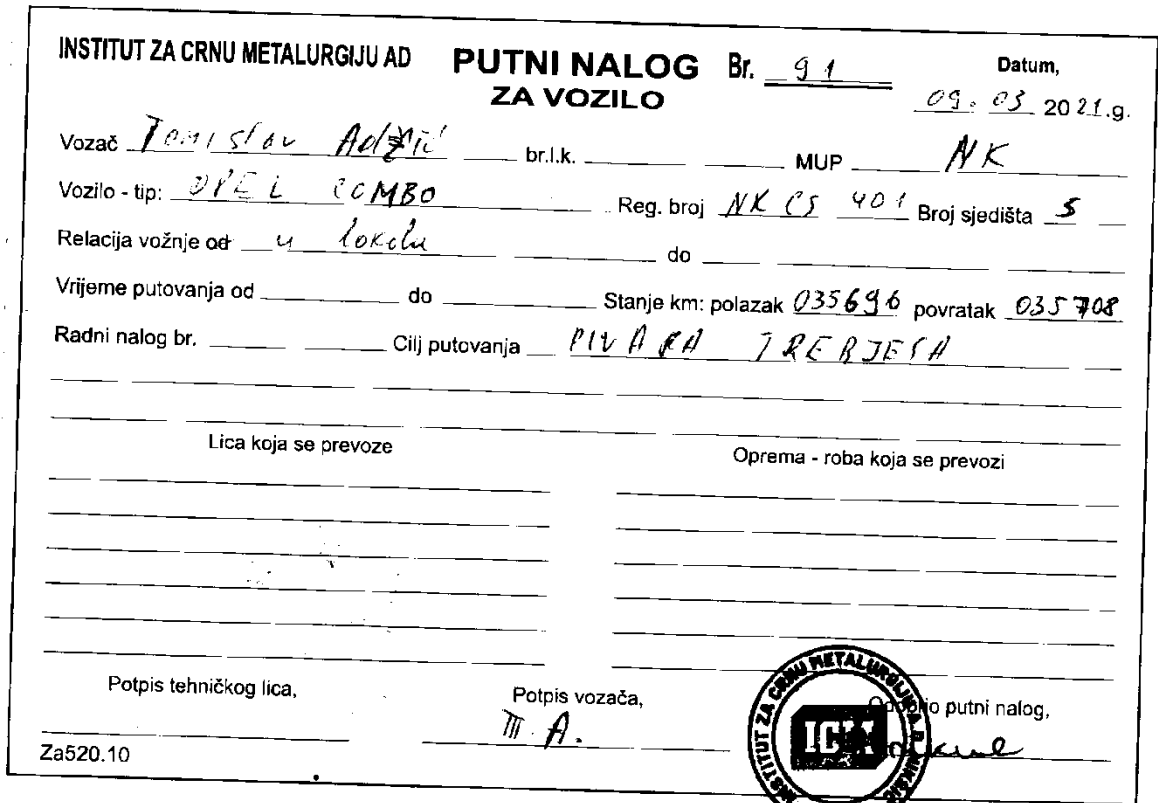 INSTITUT ZA CRNU METALURGIJU AD PUTNI NALOG Br. 91 Datum,
ZA VOZILO 09. 03 2021.g.
Vozač Tomislav Adžić br.l.k. MUP NK
Vozilo - tip: OPEL COMBO Reg. broj NK CS 401 Broj sjedišta 5
Relacija vožnje od u lokalu do
Vrijeme putovanja od do Stanje km: polazak 035696 povratak 035708
Radni nalog br. Cilj putovanja PIVARA TREBJESA
Lica koja se prevoze Oprema - roba koja se prevozi
Potpis tehničkog lica, Potpis vozača, Odobrio putni nalog,
T. A.
Za520.10
INSTITUT ZA CRNU METALURGIJU A.D. NIKŠIĆ
ICM